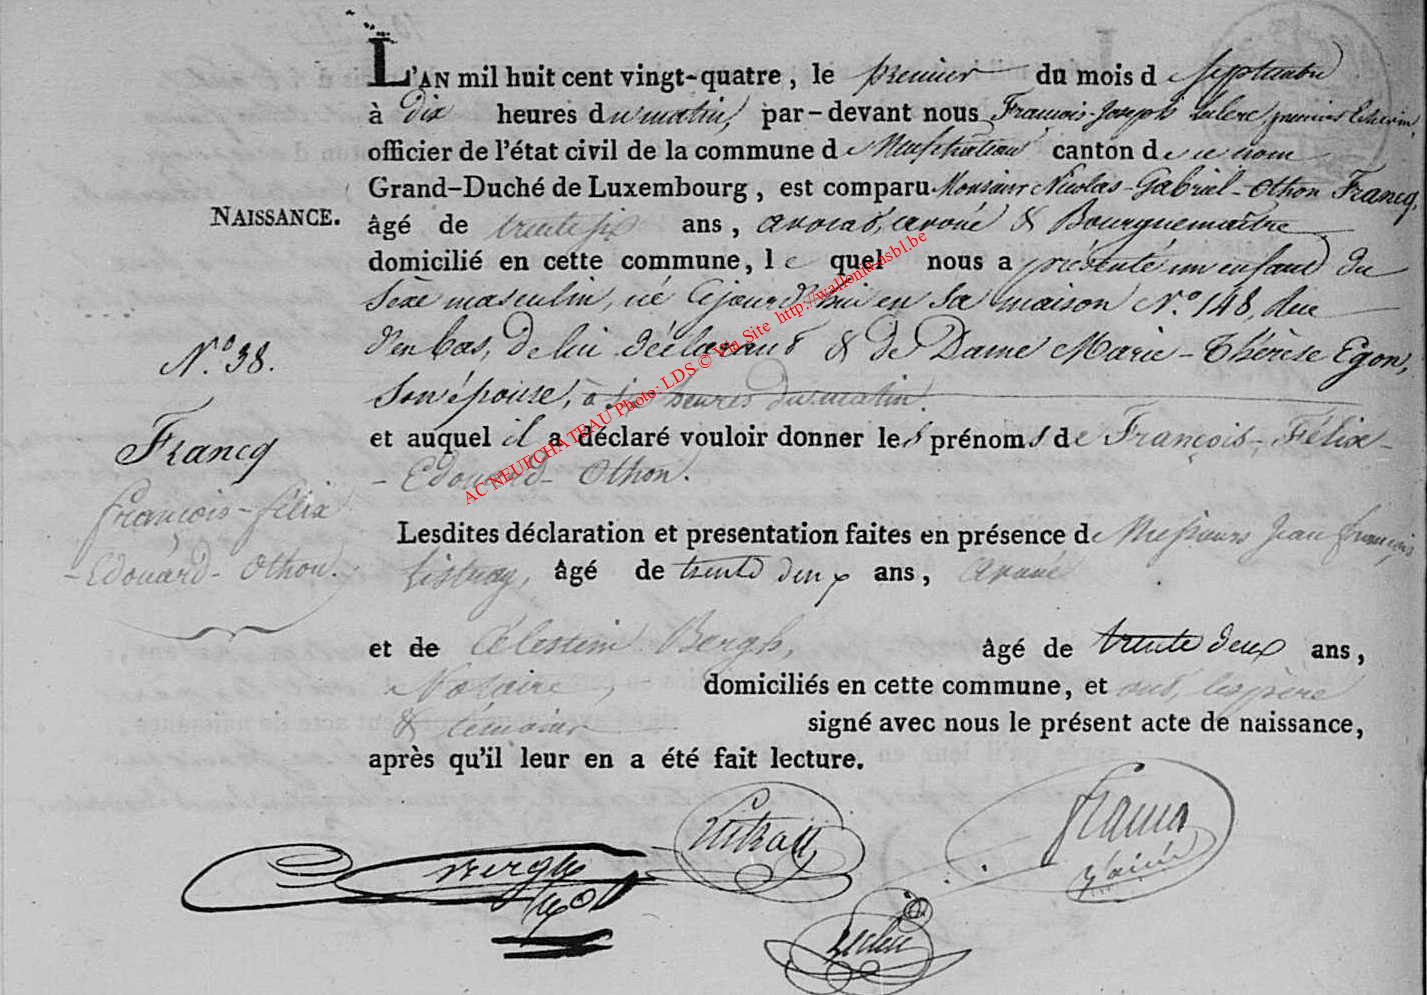 L'AN mil huit cent vingt-quatre, le premier du mois de Septembre
à dix heures du matin, par-devant nous François-Joseph Leclerc premier Echevin,
officier de l'état civil de la commune de Neufchateau canton de ce nom
Grand-Duché de Luxembourg, est comparu Monsieur Nicolas-Gabriel-Othon Francq,
NAISSANCE.
âgé de trente six ans, avocat, avoué & Bourguemaître
domicilié en cette commune, lequel nous a présenté un enfant du
Sexe masculin, né cejourd'hui en sa maison N.° 148, Rue
d'en bas, de lui déclarant & de Dame Marie-Thérèse Egon,
son épouse, à six heures du matin.
N.° 38.
Francq
françois-félix
-Edouard-Othon.
et auquel il a déclaré vouloir donner les prénoms de François-Félix-
-Edouard-Othon.
Lesdites déclaration et presentation faites en présence de Messieurs Jean françois
âgé de trente deux ans, avoué
et de Célestin Bergh, âgé de trente deux ans,
Notaire, domiciliés en cette commune, et ont, les père
& témoins signé avec nous le présent acte de naissance,
après qu'il leur en a été fait lecture.
Bergh
Francq
l'ainé
Leclerc
AC NEUFCHATEAU Photo: LDS © Via Site http://wallonia-asbl.be